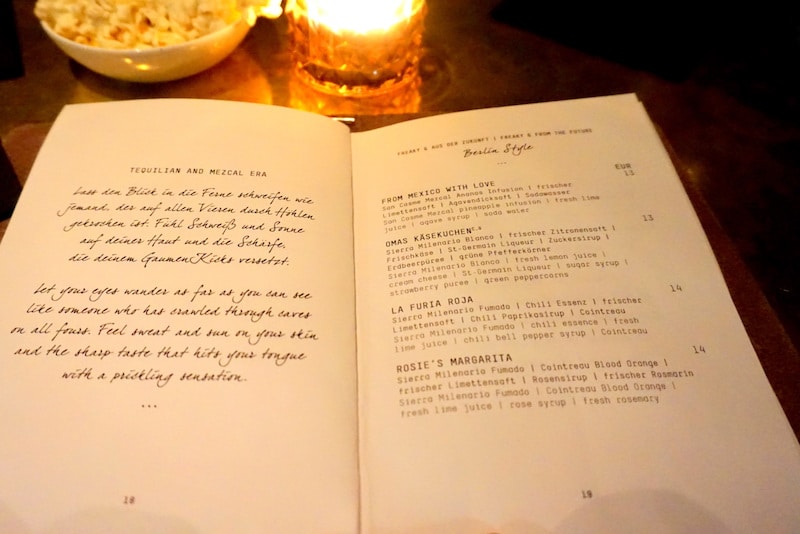 TEQUILIAN AND MEZCAL ERA
Lass den Blick in die Ferne schweifen wie
jemand, der auf allen Vieren durch Höhlen
gekrochen ist. Fühl Schweiß und Sonne
auf deiner Haut und die Schärfe,
die deinem Gaumen Kicks versetzt.
Let your eyes wander as far as you can see
like someone who has crawled through caves
on all fours. Feel sweat and sun on your skin
and the sharp taste that hits your tongue
with a prickling sensation.
...
18
FREAKY & AUS DER ZUKUNFT | FREAKY & FROM THE FUTURE
Berlin Style
...
EUR
FROM MEXICO WITH LOVE 13
San Cosme Mezcal Ananas Infusion | frischer
Limettensaft | Agavendicksaft | Sodawasser
San Cosme Mezcal pineapple infusion | fresh lime
juice | agave syrup | soda water
OMAS KÄSEKUCHEN 13
Sierra Milenario Blanco | frischer Zitronensaft |
Frischkäse | St-Germain Liqueur | Zuckersirup |
Erdbeerpüree | grüne Pfefferkörner
Sierra Milenario Blanco | fresh lemon juice |
cream cheese | St-Germain Liqueur | sugar syrup |
strawberry puree | green peppercorns
LA FURIA ROJA 14
Sierra Milenario Fumado | Chili Essenz | frischer
Limettensaft | Chili Paprikasirup | Cointreau
Sierra Milenario Fumado | chili essence | fresh
lime juice | chili bell pepper syrup | Cointreau
ROSIE'S MARGARITA 14
Sierra Milenario Fumado | Cointreau Blood Orange |
frischer Limettensaft | Rosensirup | frischer Rosmarin
Sierra Milenario Fumado | Cointreau Blood Orange |
fresh lime juice | rose syrup | fresh rosemary
19